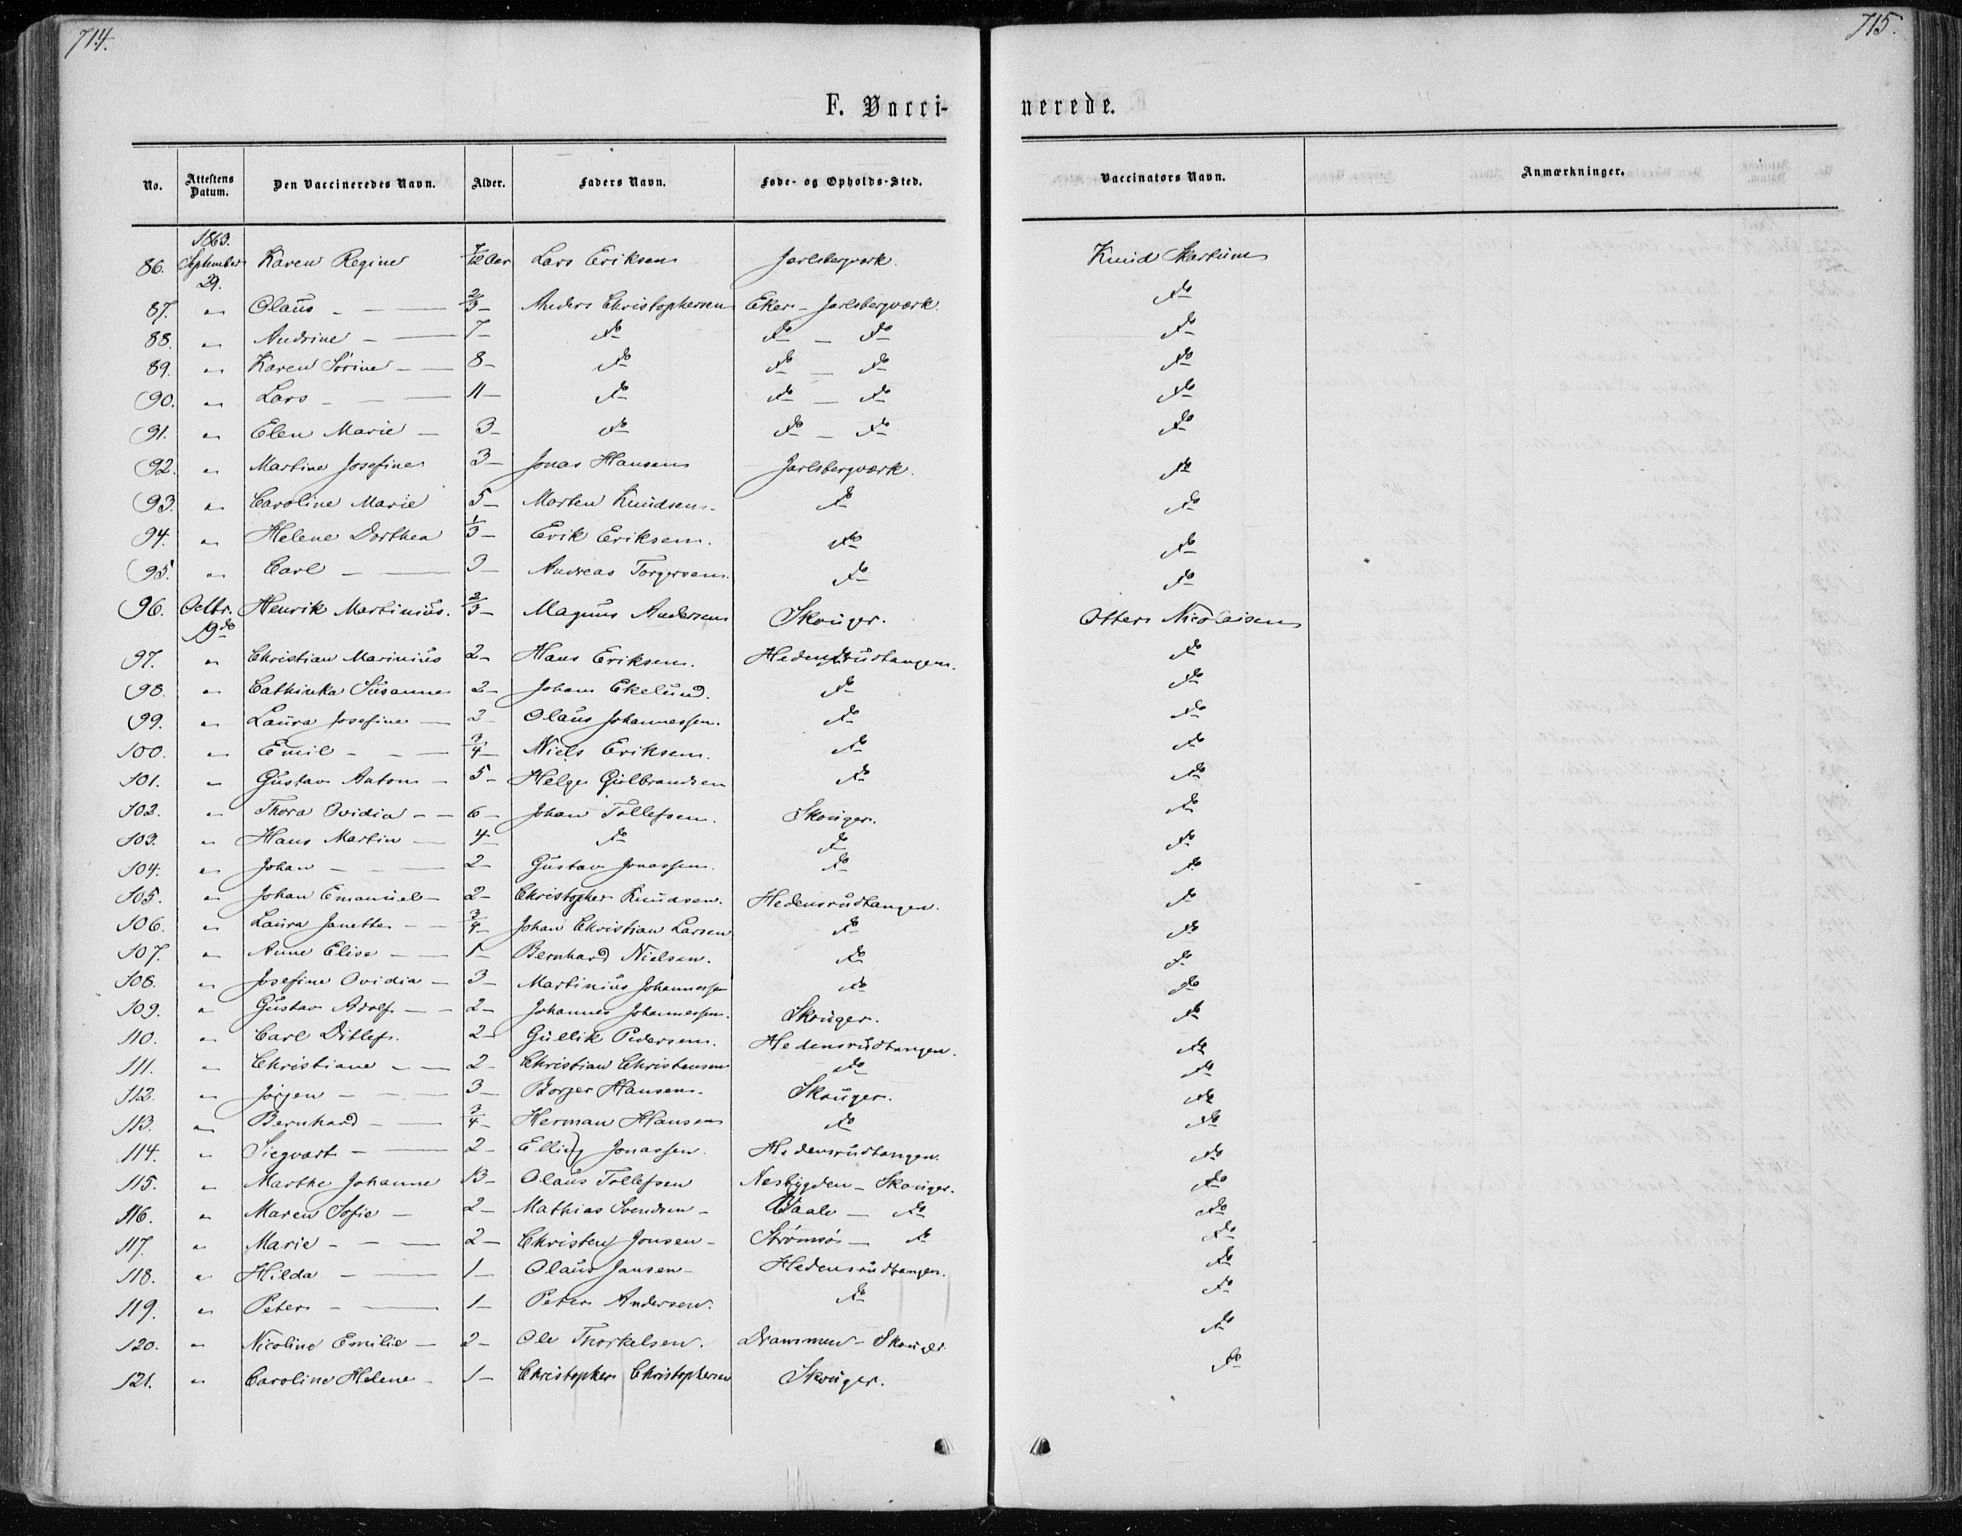 714.
715.
F. Vacci-
nerede.
No. Attestens Datum. Den Vaccineredes Navn. Alder. Faders Navn. Føde- og Opholds-Sted. Vaccinators Navn. Anmærkninger.
1863.
86. September 29. Karen Regine 7/12 Aar Lars Eriksen Jarlsbergværk. Knud
87. " Olaus 2/3 Anders Christophersen Eker - Jarlsbergværk. do
88. " Andrine 7 do do - do do
89. " Karen Sørine 8 do do - do do
90. " Lars 11 do do - do do
91. " Elen Marie 3 do do - do do
92. " Martine Josefine 3 Jonas Hansen Jarlsbergværk. do
93. " Caroline Marie 5 Morten Knudsen do do
94. " Helene Dorthea 1/3 Erik Eriksen. do do
95. " Carl 9 Andreas Torgersen. do do
96. Octbr. 19de Henrik Martinius. 2/3 Magnus Andersen Skouger. Otter Nicolaisen
97. " Christian Marinius 2 Hans Eriksen. Hedensrudtangen. do
98. " Cathinka Susanne 2 Johan Ekelund. do do
99. " Laura Josefine 2 Olaus Johannessen. do do
100. " Emil 3/4 Niels Eriksen. do do
101. " Gustav Anton 5 Helge Gulbrandsen do do
102. " Thora Ovidia 6 Johan Tollefsen. Skouger. do
103. " Hans Martin 4 do do do
104. " Johan 2 Gustav Jonassen. do do
105. " Johan Emanuel 2 Christopher Knudsen. Hedensrudtangen. do
106. " Laura Janette 3/4 Johan Christian Larsen do do
107. " Anne Elise 1 Bernhard Nielsen. do do
108. " Josefine Ovidia 3 Martinius Johannessen do do
109. " Gustav Adolf 2 Johannes Johannessen. Skouger. do
110. " Carl Ditlef. 2 Gullik Pedersen. Hedensrudtangen. do
111. " Christiane 2 Christian Christensen do do
112. " Jørgen 3 Borger Hansen. Skouger. do
113. " Bernhard 3/4 Herman Hansen do do
114. " Siegvart 2 Elling Jonassen. Hedensrudtangen. do
115. " Marthe Johanne 13 Olaus Tollefsen Nesbygden - Skouger. do
116. " Maren Sofie 2 Mathias Svendsen Vaale - do do
117. " Marie 2 Christen Jonsen Strømsø - do do
118. " Hilda 1 Olaus Jansen Hedensrudtangen. do
119. " Peter 1 Peter Andersen. do do
120. " Nicoline Emilie 2 Ole Thorkelsen. Drammen - Skouger do
121. " Caroline Helene 1 Christopher Christophersen Skouger. do